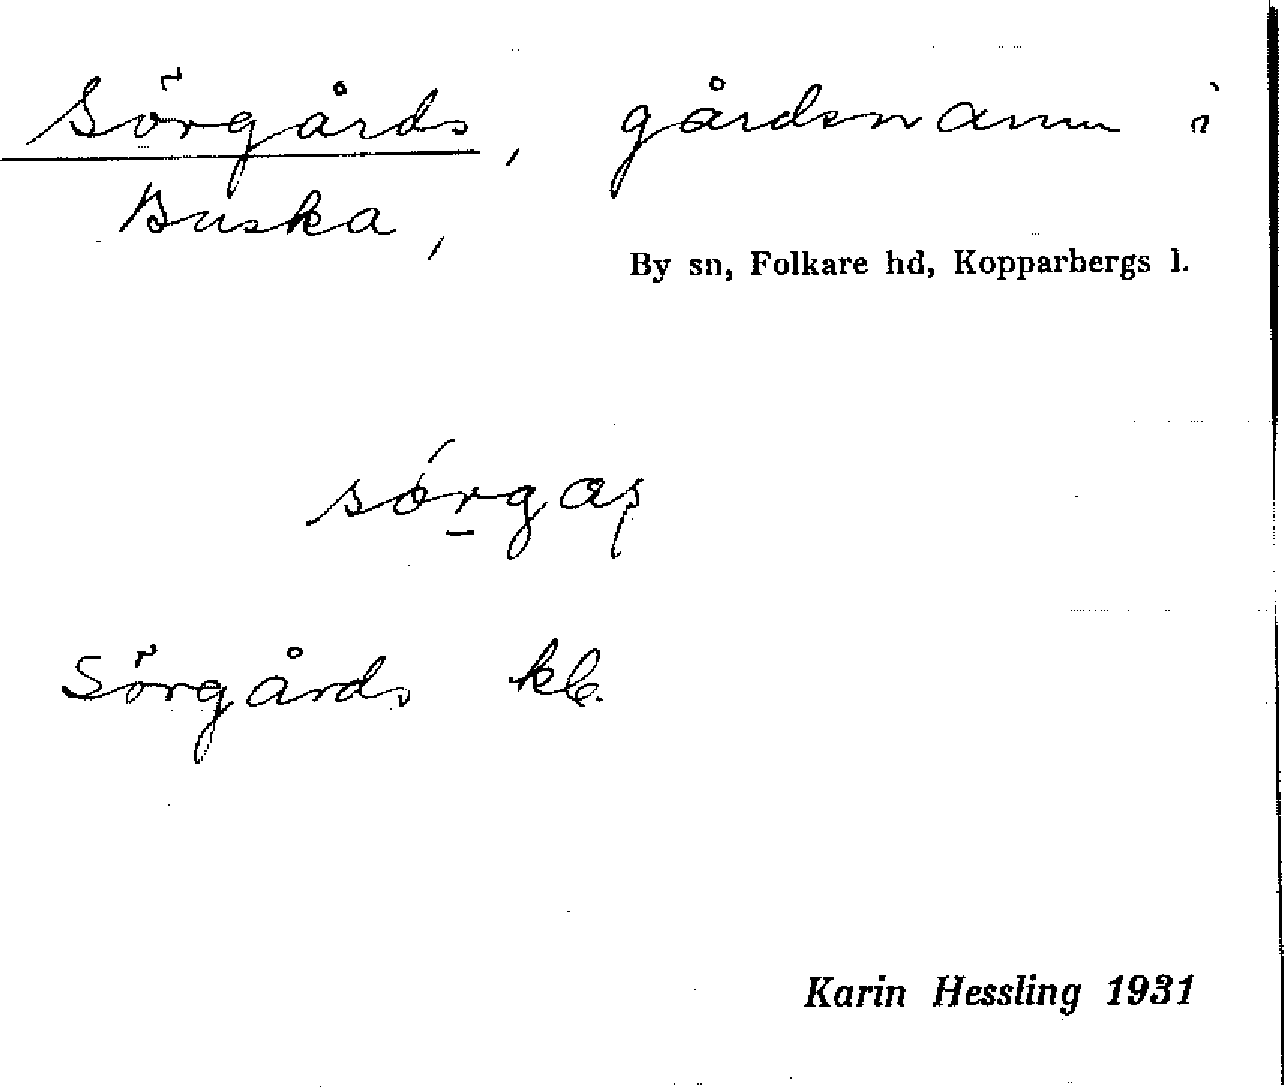 Sörgårds, gårdsnamn i
Buska,
By sn, Folkare hd, Kopparbergs l.
Sörgårds
Karin Hessling 1931